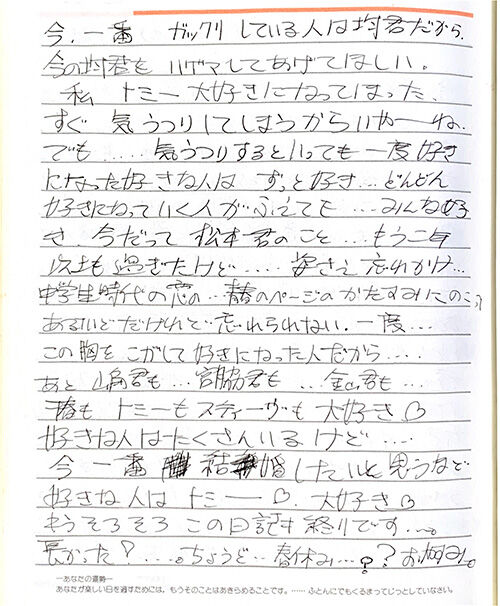 今、一番 ガックリ している人は均君だから、
今の均君を ハゲマしてあげてほしい。
私 トミー 大好きになってしまった、
すぐ 気うつりしてしまうからいやーね.
でも …… 気うつりするといっても一度好き
になった好きな人は ずっと好き… どんどん
好きになっていく人がふえても …みんな好
き、今だって 松本君のこと… もう二年
以上も過ぎたけど…… 姿さえ忘れかけ…
中学生時代の恋の… 青春のページの かたすみにのこって
あるいどだけれど… 忘れられない. 一度…
この胸を こがして好きになった人だから ….
あと 山崎君も… 宮脇君も … 金山君も …
博も トミーも スティーヴも 大好き♡
好きな人はたくさんいるけど ….
今 一番 結婚したいと思うほど
好きな人は トミー ♡. 大好き♡
もうそろそろ この日記も 終りです….。
長かった? ….。ちょうど… 春休み…? お
―あなたの運勢―
あなたが楽しい日を過すためには、もうそのことはあきらめることです。…… ふとんにでもくるまってじっとしていなさい。